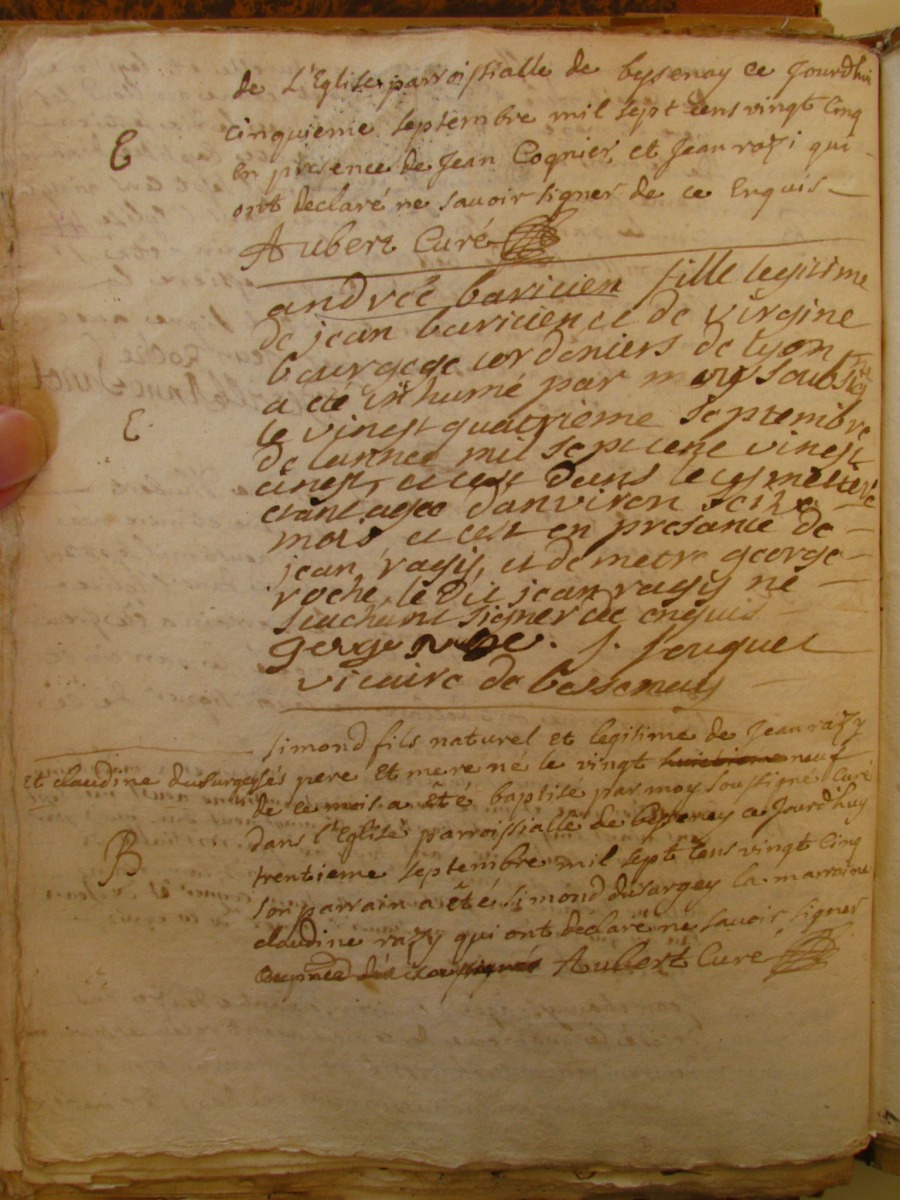 de L'Eglise parroissialle de bessenay ce Jourdhui
cinquieme septembre mil sept cens vingt cinq
E
en presence de Jean Cognier et Jean razi qui
ont declaré ne savoir signer de ce Enquis
Aubert Curé
andrée baricien fille legitime
de jean baricien et de virgine
bourgeoe cordoniers de lyon
a eté in humé par moy soubsig
E
le vingt quatrieme septembre
de lannee mil sept cent vingt
cinest et cest dans le cymettere
etant agee danviron seize
mois et cest en presance de
jean ragy, et de metre george
roche le dit jean ragy ne
sachant signer de enquis
gerge roche. J. fouquet
vicaire de bessenay
simond fils naturel et legitime de Jean razy
et claudine dusurgey sés pere et mere né le vingt huitieme neuf
de ce mois a été baptisé par moy soussigné Curé
dans l'Eglise parroissialle de bessenay ce Jourd'huy
B
trentieme septembre mil sept cens vingt cinq
son parrain a été simond dusargey la marraine
claudine razy qui ont déclaré ne savoir signer
Aubert Curé